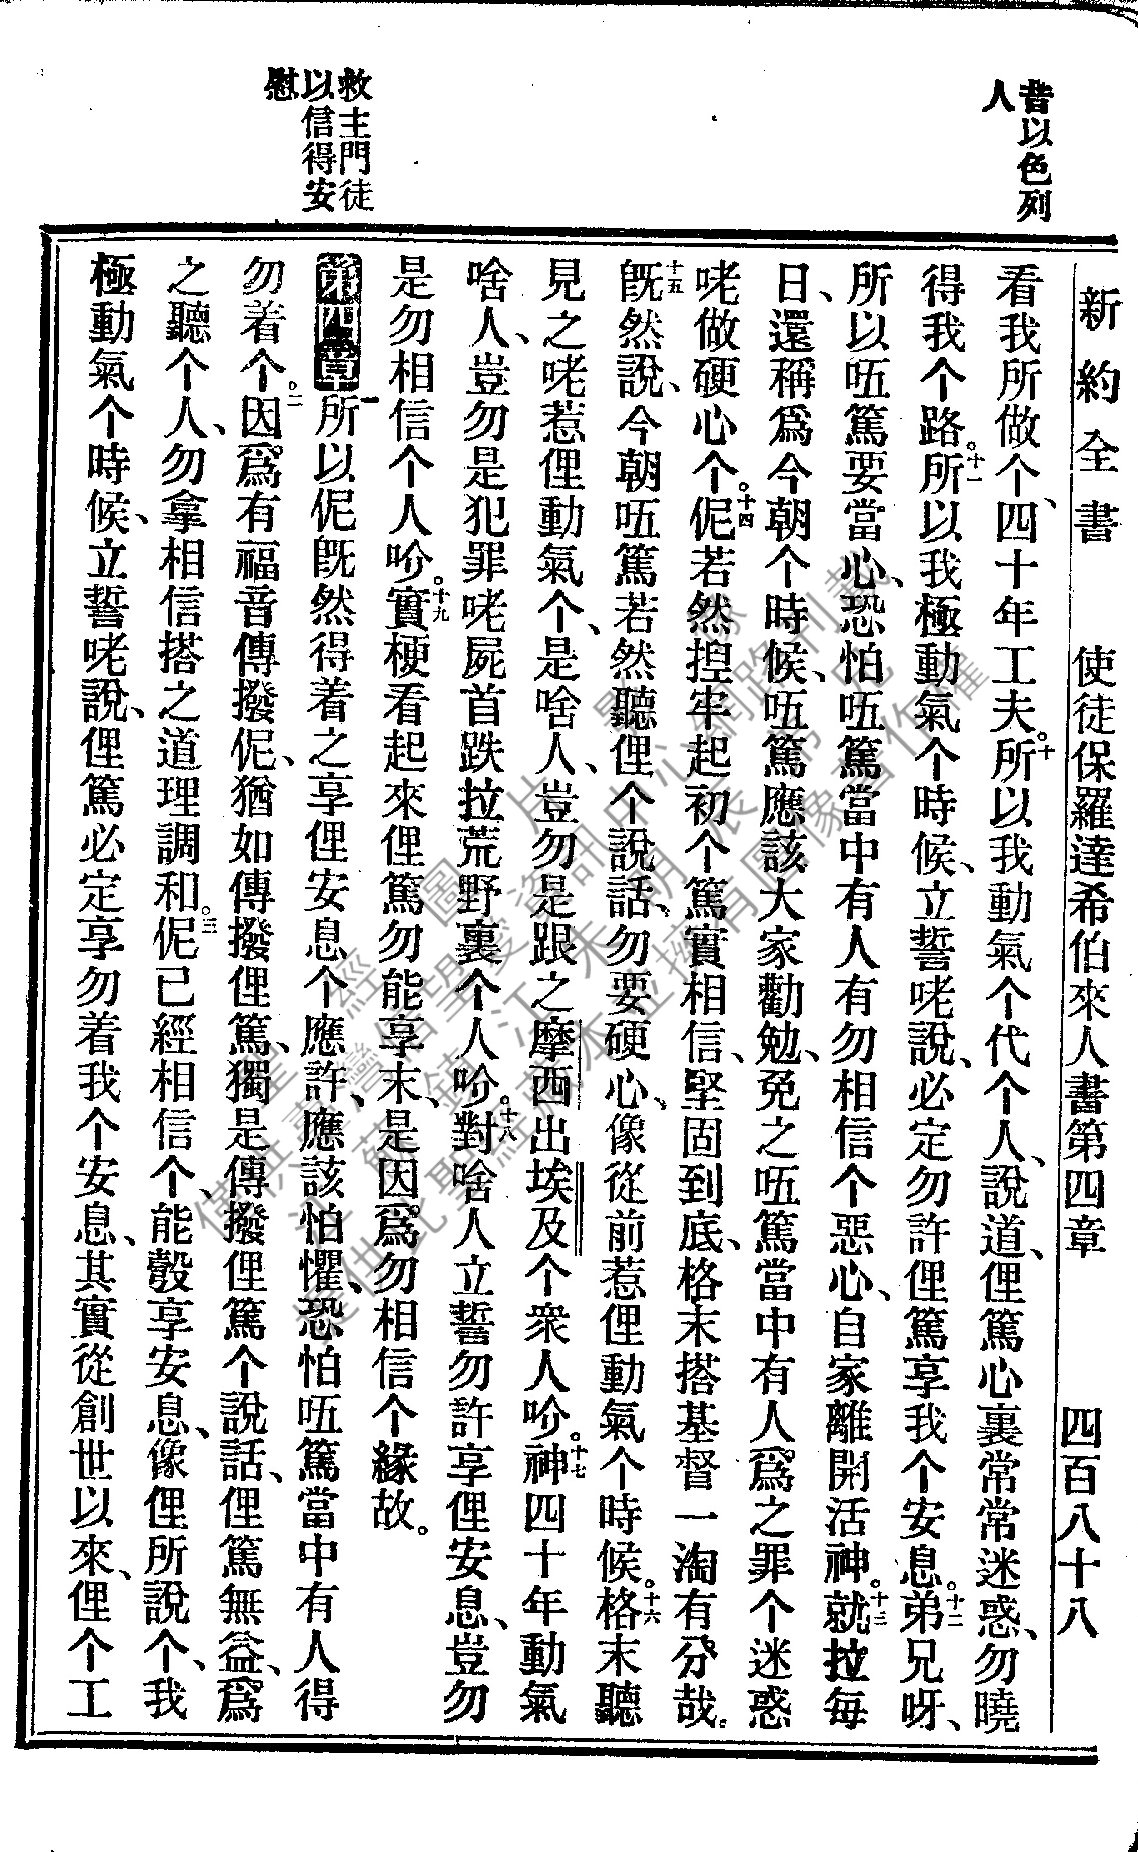 昔以色列
人
救主門徒
以信得安
慰
新約全書　使徒保羅達希伯來人書第四章　四百八十八
看我所做个、四十年工夫。十所以我動氣个代个人、說道、俚篤心裏常常迷惑、勿曉
得我个路。十一所以我極動氣个時候、立誓咾說、必定勿許俚篤享我个安息。十二弟兄呀、
所以㕶篤要當心、恐怕㕶篤當中有人有勿相信个惡心、自家離開活神。十三就拉每
日、還稱爲今朝个時候、㕶篤應該大家勸勉、免之㕶篤當中有人爲之罪个迷惑
咾做硬心个。十四伲若然揑牢起初个篤實相信、堅固到底、格末搭基督一淘有分哉。
十五旣然說、今朝㕶篤若然聽俚个說話、勿要硬心、像從前惹俚動氣个時候。十六格末聽
見之咾惹俚動氣个、是啥人、豈勿是跟之摩西出埃及个衆人吤。十七神四十年動氣
啥人、豈勿是犯罪咾屍首跌拉荒野裏个人吤。十八對啥人立誓勿許享俚安息、豈勿
是勿相信个人吤。十九實梗看起來俚篤勿能享末、是因爲勿相信个緣故。
第四章一所以伲旣然得着之享俚安息个應許、應該怕懼、恐怕㕶篤當中有人得
勿着个。二因爲有福音傳撥伲、猶如傳撥俚篤、獨是傳撥俚篤个說話、俚篤無益、爲
之聽个人、勿拿相信搭之道理調和。三伲已經相信个、能彀享安息、像俚所說个、我
極動氣个時候、立誓咾說、俚篤必定享勿着我个安息、其實從創世以來、俚个工